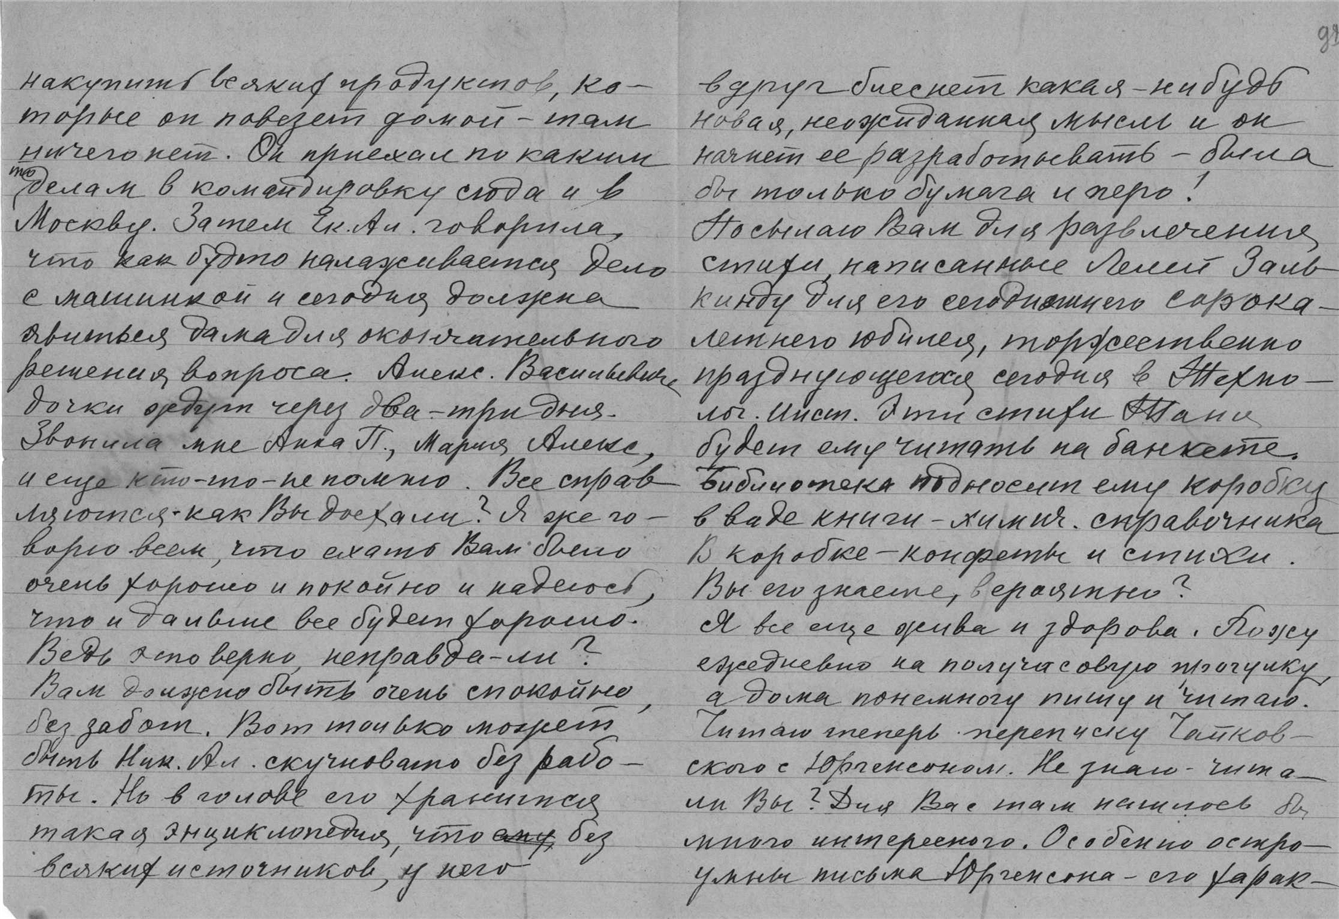 накупить всяких продуктов, ко-
торые он повезет домой – там
ничего нет. Он приехал по каким
то
делам в командировку сюда и в
Москву. Затем Ек. Ал. говорила,
что как будто налаживается дело
с машинкой и сегодня должна
явиться дама для окончательного
решения вопроса. Алекс. Васильевича
дочки ждут через два-три дня.
Звонила мне Анна П., Мария Алекс,
и еще кто-то – не помню. Все справ
ляются – как Вы доехали? Я же го-
ворю всем, что ехать Вам было
очень хорошо и покойно и надеюсь,
что и дальше все будет хорошо.
Ведь это верно, неправда-ли?
Вам должно быть очень спокойно,
без забот. Вот только может
быть Ник. Ал. скучновато без рабо-
ты. Но в голове его хранится
такая энциклопедия, что ему без
всяких источников, у него
94
вдруг блеснет какая-нибудь
новая, неожиданная мысль и он
начнет ее разрабатывать – была
бы только бумага и перо!
Посылаю Вам для развлечения
стихи, написанные Лелей Заль-
кинду для его сегодняшнего сорока-
летнего юбилея, торжественно
празднующегося сегодня в Техно-
лог. Инст. Эти стихи Таня
будет ему читать на банкете.
Библиотека подносит ему коробку
в виде книги – химич. справочника
В коробке – конфеты и стихи.
Вы его знаете, вероятно?
Я все еще жива и здорова. Хожу
ежедневно на получасовую прогулку,
а дома понемногу пишу и читаю.
Читаю теперь переписку Чайков-
ского с Юргенсоном. Не знаю – чита-
ли Вы? Для Вас там нашлось бы
много интересного. Особенно остро-
умны письма Юргенсона – его харак-